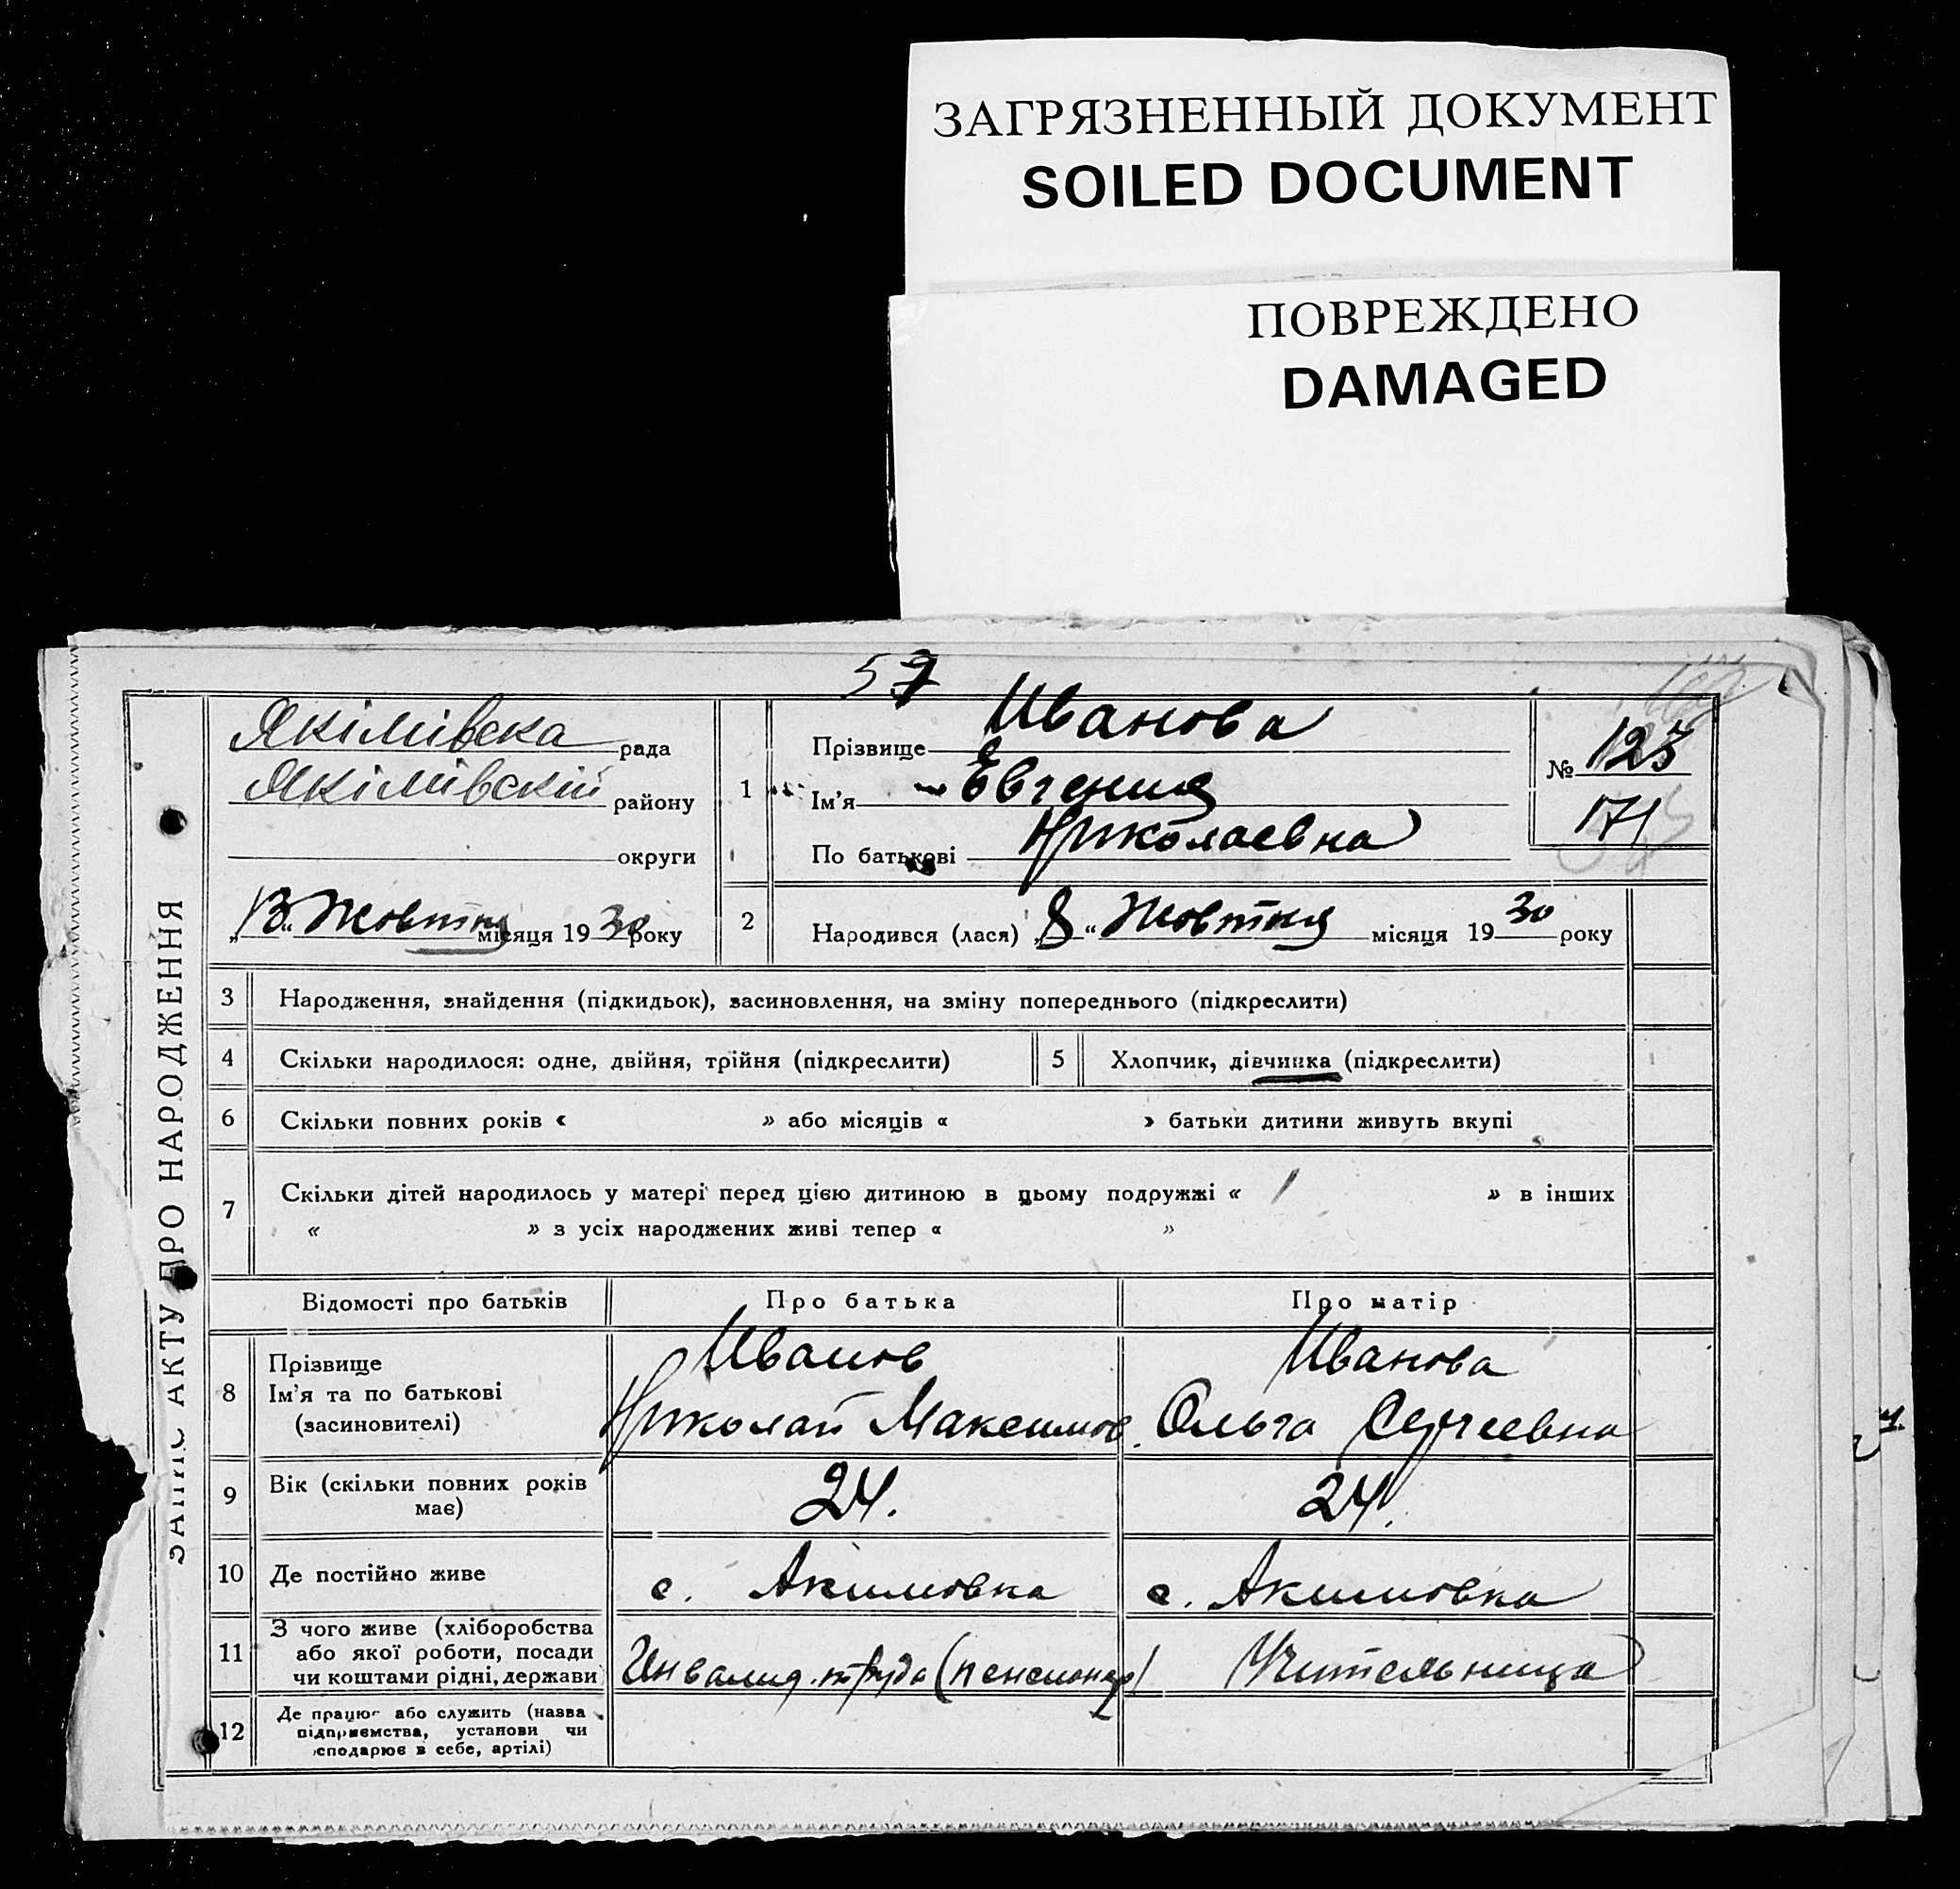 ЗАГРЯЗНЕННЫЙ ДОКУМЕНТ
SOILED DOCUMENT
ПОВРЕЖДЕНО
DAMAGED
57
ЗАПИС АКТУ ПРО НАРОДЖЕННЯ
Якімівска рада
Якімівскій району
округи
„13“ Жовтня місяця 1930 року
1
Прізвище Иванова
Ім'я Евгения
По батькові Николаевна
№ 123
171
2
Народився (лася) „8“ Жовтня місяця 1930 року
3 Народження, знайдення (підкидьок), засиновлення, на зміну попереднього (підкреслити)
4 Скільки народилося: одне, двійня, трійня (підкреслити)
5 Хлопчик, дівчинка (підкреслити)
6 Скільки повних років « » або місяців « » батьки дитини живуть вкупі
7 Скільки дітей народилось у матері перед цією дитиною в цьому подружжі « 1 » в інших
« » з усіх народжених живі тепер « »
Відомості про батьків Про батька Про матір
8 Прізвище
Ім'я та по батькові
(засиновителі)
Иванов
Николай Максимов.
Иванова
Ольга Сергеевна
9 Вік (скільки повних років
має)
24.
24.
10 Де постійно живе
с. Акимовка
с. Акимовка
11 З чого живе (хліборобства
або якої роботи, посади
чи коштами рідні, держави
Инвалид. труда (пенсионер)
Учительница
12 Де працює або служить (назва
підприємства, установи чи
сподарює в себе, артілі)